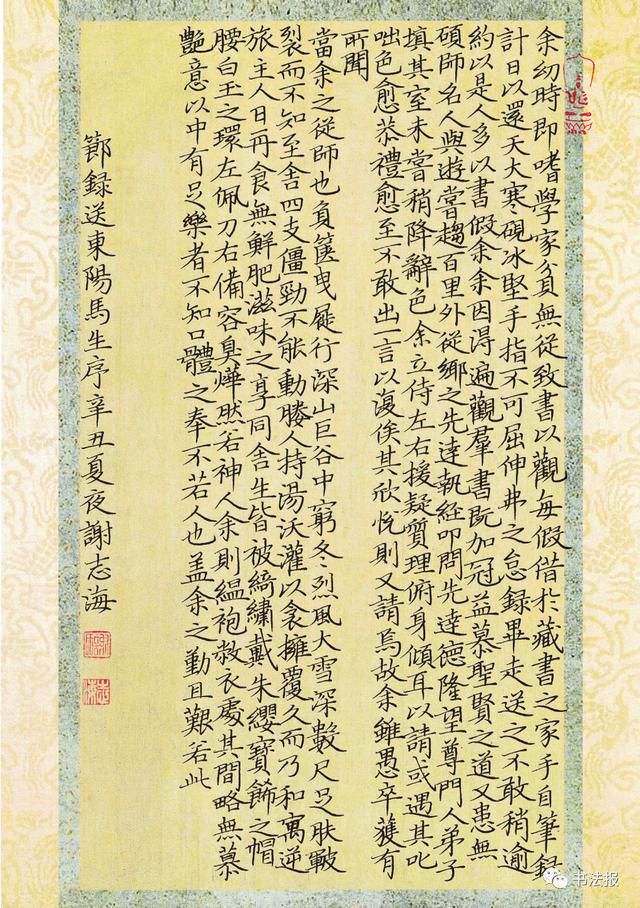 余幼時即嗜學家貧無從致書以觀每假借於藏書之家手自筆録
計日以還天大寒硯冰堅手指不可屈伸弗之怠録畢走送之不敢稍逾
約以是人多以書假余余因得遍觀羣書既加冠益慕聖賢之道又患無
碩師名人與遊嘗趨百里外從鄉之先達執經叩問先達德隆望尊門人弟子
填其室未嘗稍降辭色余立侍左右援疑質理俯身傾耳以請或遇其叱
咄色愈恭禮愈至不敢出一言以復俟其欣悅則又請焉故余雖愚卒獲有
所聞
當余之從師也負篋曳屣行深山巨谷中窮冬烈風大雪深數尺足膚皸
裂而不知至舍四支僵勁不能動媵人持湯沃灌以衾擁覆久而乃和寓逆
旅主人日再食無鮮肥滋味之享同舍生皆被綺繡戴朱纓寶飾之帽
腰白玉之環左佩刀右備容臭燁然若神人余則緼袍敝衣處其間略無慕
艷意以中有足樂者不知口體之奉不若人也蓋余之勤且艱若此
節録送東陽馬生序辛丑夏夜謝志海
书法报